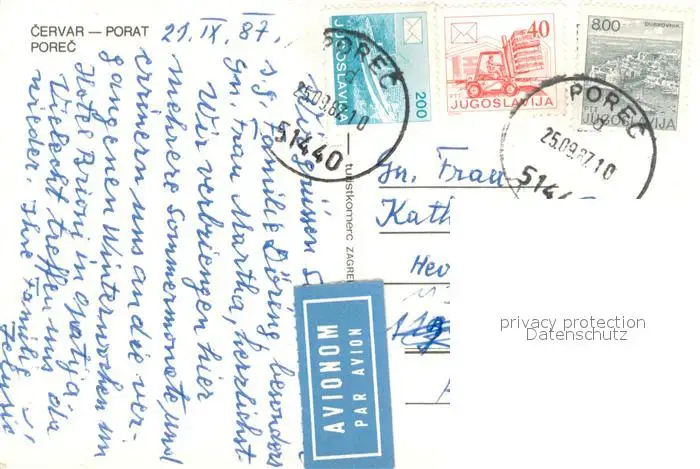 ČERVAR — PORAT
POREČ
21. IX. 87.
Wir grüssen
sg. Familie Döring besonders
gn. Frau Martha, herzlichst
Wir verbringen hier
mehrere Sommermonate, und
errinern uns an die ver-
gangenen Winterwochen im
Hotel Brioni in Opatija.
Vieleicht treffen uns da
wieder. Ihre Familie
turistkomerc ZAGRE
JUGOSLAVIJA
200
40
JUGOSLAVIJA
8.00
DUBROVNIK
JUGOSLAVIJA
POREČ
d
25.09.87.10
51440
POREČ
25.09.87.10
5144
Gn. Frau
Kath
AVIONOM
PAR AVION
privacy protection
Datenschutz